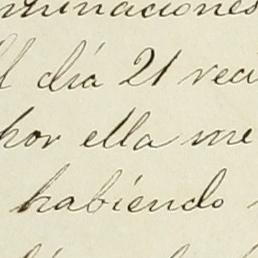 minaciones
día 21 reci
por ella me
habiendo